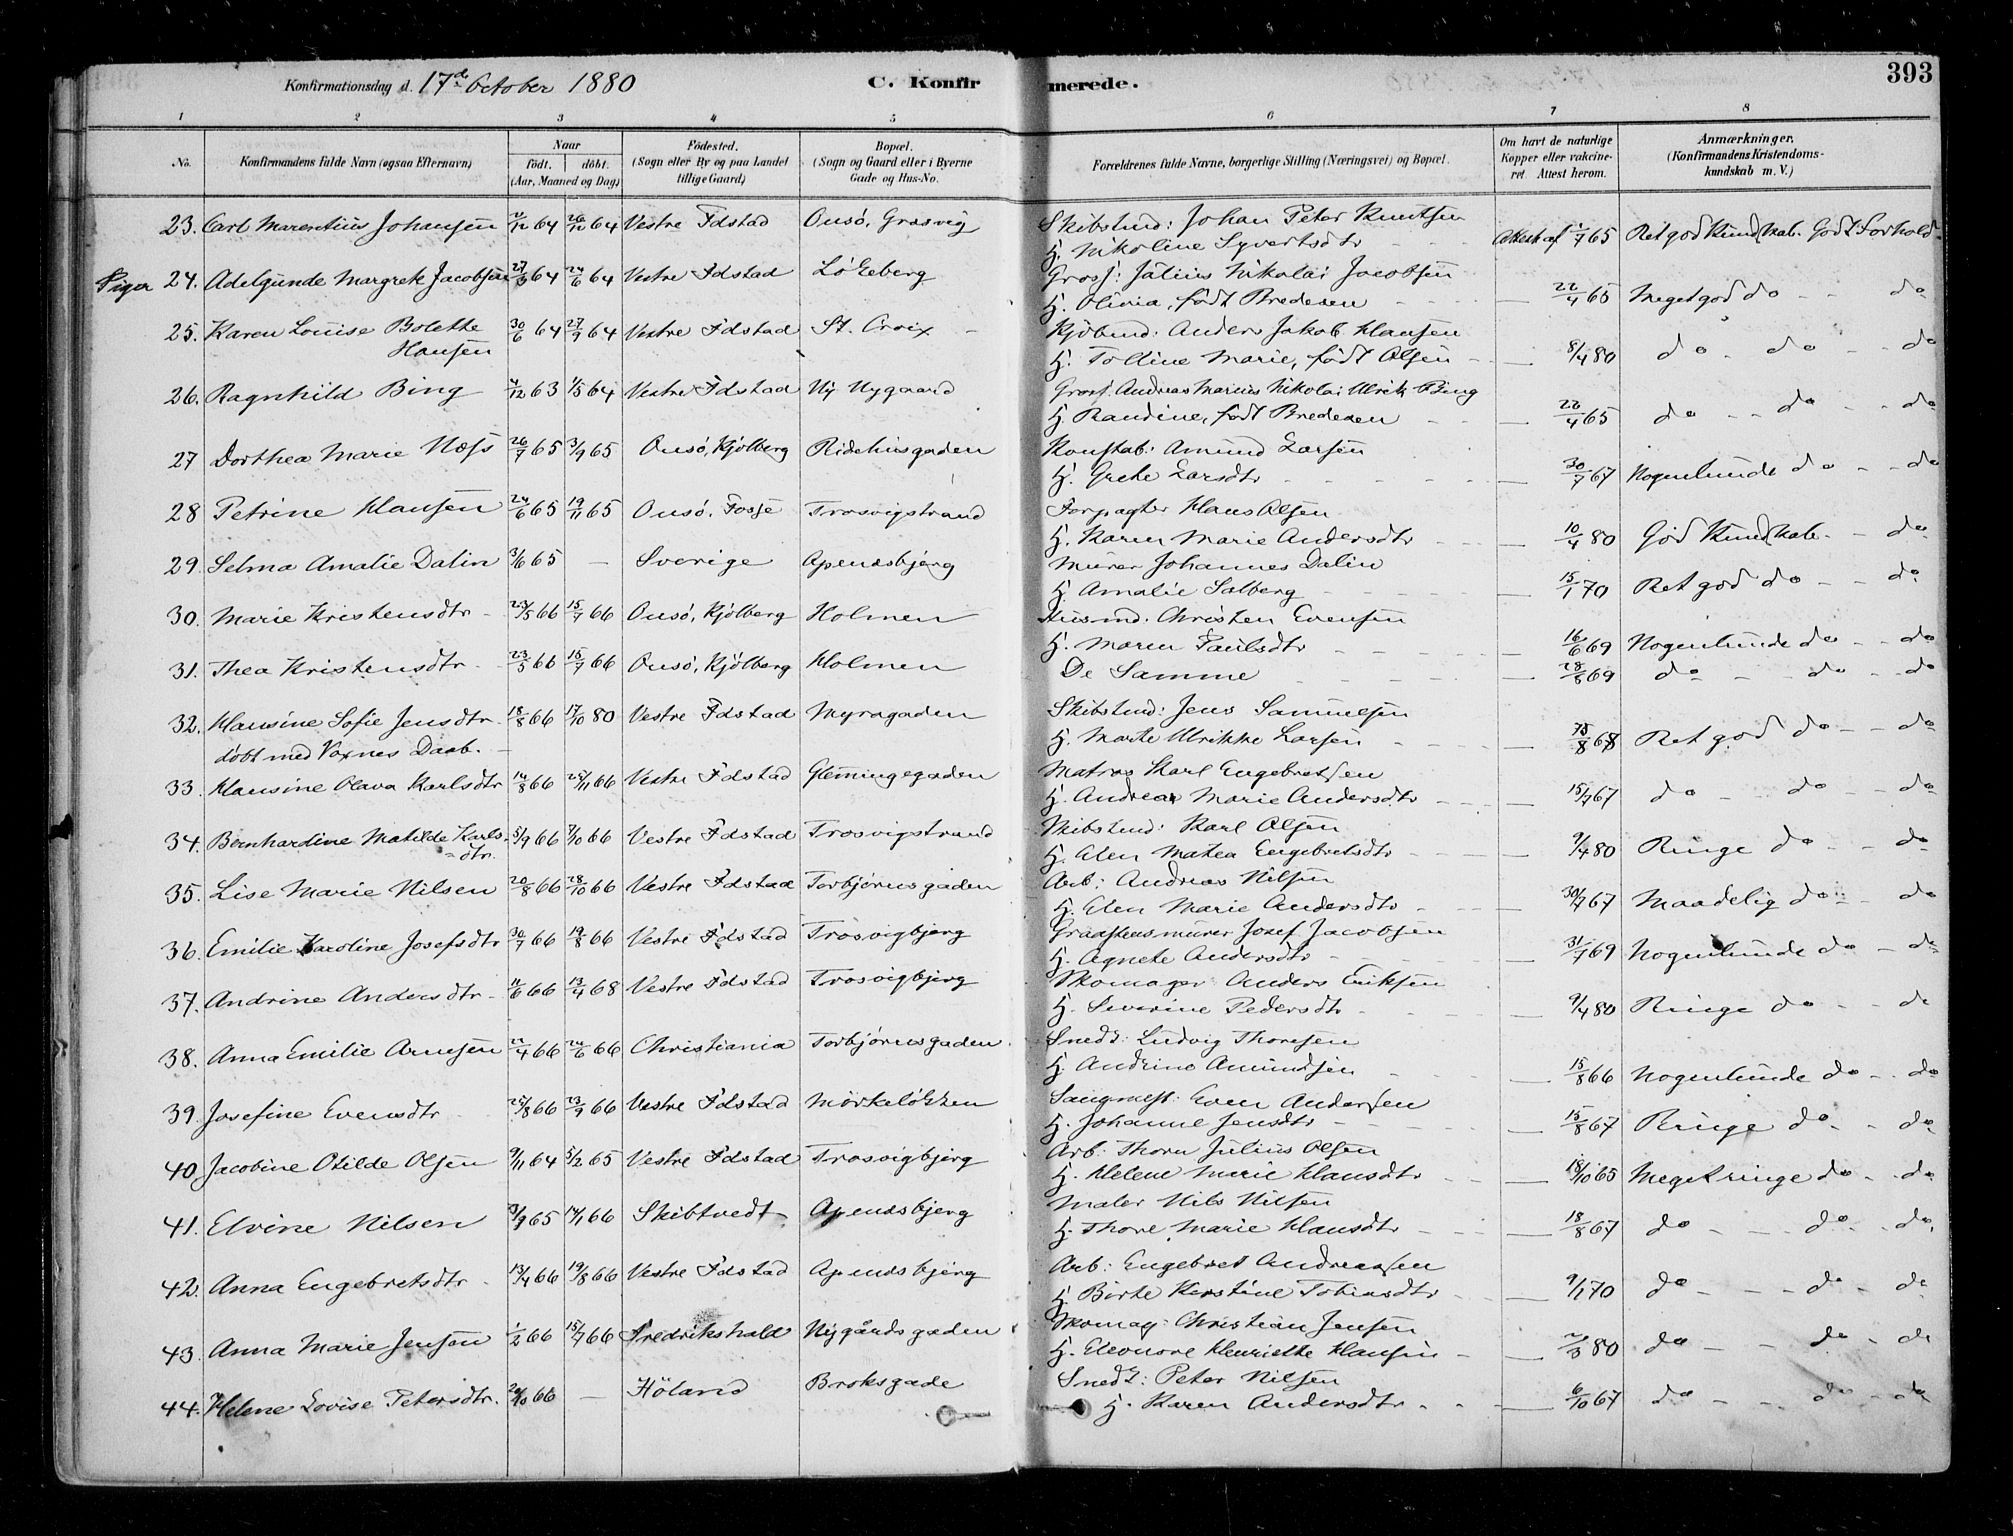 Konfirmationsdag d. 17de October 1880 C. Konfirmerede. 393
1 2 3 4 5 6 7 8
No. Konfirmandens fulde Navn (ogsaa Efternavn) Naar født. døbt. (Aar, Maaned og Dag) Fødested. (Sogn eller By og paa Landet tillige Gaard) Bopæl. (Sogn og Gaard eller i Byerne Gade og Hus-No. Forældrenes fulde Navne, borgerlige Stilling (Næringsvei) og Bopæl. Om havt de naturlige Kopper eller vakcineret. Attest herom. Anmærkninger. (Konfirmandens Kristendomskundskab m. V.)
23. Carl Marentius Johansen 64 26/12 64 Vestre Fdstad Onsö, Gresvig Skibstmd: Johan Peter Knutsen
H. Nikoline Syvertsdtr Attest af 65 Ret god Kundskab. Godt Forhold
Piger 24. Adelgunde Margrete Jacobsen 64 24/6 64 Vestre Fdstad Lökeberg Gross: Julius Nikolai Jacobsen
H. Olivia, født Bredesen 22/4 65 Meget god do do
25. Karen Louise Bolette Hansen 30/6 64 27/9 64 Vestre Fdstad St. Croix Kjöbmd: Anders Jakob Hansen
H. Tolline Marie, født Olsen 8/4 80 do do do
26. Ragnhild Bing 4/12 63 1/5 64 Vestre Fdstad Ny Nygaard Gross. Andreas Marius Nikolai Ulrik Bing
H. Randine, født Bredesen 22/4 65 do do do
27 Dorthea Marie Næss 26/7 65 3/9 65 Onsö, Kjölberg Ridehusgaden Konstab: Amund Larsen
H. Grethe Larsdtr 30/7 67 Nogenlunde do do
28 Petrine Hansen 24/6 65 19/11 65 Onsö. Fosse Trosvigstrand Forpagter Hans Olsen
H. Karen Marie Andersdtr 10/4 80 God Kundskab. do
29. Selma Amalie Dalin 3/6 65 — Sverige Apenæsbjerg Murer Johannes Dalin
H Amalie Solberg 15/1 70 Ret god do do
30. Marie Kristensdtr 23/5 66 15/7 66 Onsö, Kjölberg Holmen Husmd. Christen Evensen
H. Maren Paulsdtr 16/6 69 Nogenlunde do do
31. Thea Kristensdtr. 23/5 66 15/7 66 Onsö, Kjölberg Holmen De Samme 28/8 69 do do do
32. Hansine Sofie Jensdtr 18/8 66 17/10 80 Vestre Fdstad Myragaden Skibstmd: Jens Samuelsen
döbt med Voxnes Daab. H. Marte Ulrikke Larsen 68 Ret god do do
33. Hansine Olava Karlsdtr 14/8 66 25/11 66 Vestre Fdstad Glemmingegaden Matros Karl Engebretsen
H. Andrea Marie Andersdtr 15/7 67 do do do
34. Bernhardine Matilde Karlsdtr. 5/9 66 7/10 66 Vestre Fdstad Trosvigstrand Skibstmd: Karl Olsen
H. Elen Matea Engebretsdtr 9/4 80 Ringe do do
35. Lise Marie Nilsen 20/8 66 28/10 66 Vestre Fdstad Torbjörnsgaden Arb: Andreas Nilsen
H. Elen Marie Andersdtr 30/7 67 Maadelig do do
36. Emilie Karoline Josefsdtr 30/7 66 19/8 66 Vestre Fdstad Trosvigbjerg Graastensmurer Josef Jacobsen
H. Agnete Andersdtr 31/7 69 Nogenlunde do do
37. Andrine Andersdtr 11/6 66 13/4 68 Vestre Fdstad Trosvigbjerg Skomager Anders Eriksen
H. Severine Pedersdtr 9/4 80 Ringe do do
38. Anna Emilie Arnesen 22/4 66 24/6 66 Christiania Torbjörnsgaden Snedk: Ludvig Thoresen
H. Andrine Amundsen 15/8 66 Nogenlunde do do
39. Josefine Evensdtr 25/8 66 23/9 66 Vestre Fdstad Mörkelökken Saugmest: Even Andersen
H. Johanne Jensdtr 15/8 67 Ringe do do
40 Jacobine Otilde Olsen 9/11 64 5/2 65 Vestre Fdstad Trosvigbjerg Arb: Thorn Julius Olsen
H. Helene Marie Hansdtr 18/10 65 Meget ringe do do
41. Elvine Nilsen 3/9 65 14/1 66 Skibtvedt Apenæsbjerg Maler Nils Nilsen
H. Thore Marie Hansdtr 18/8 67 do do do
42. Anna Engebretsdtr 13/4 66 19/8 66 Vestre Fdstad Apenæsbjerg Arb: Engebret Andreassen
H. Birte Kirstine Tobiasdtr 9/1 70 do do do
43. Anna Marie Jensen 1/2 66 15/7 66 Fredrikshald Nygårdsgaden Skomag: Christian Jensen
H. Eleonore Henriette Hansen 80 do do do
44. Helene Lovise Petersdtr. 66 — Höland Broksgade Snedk: Peter Nilsen
H. Karen Andersdtr 6/10 67 do do do